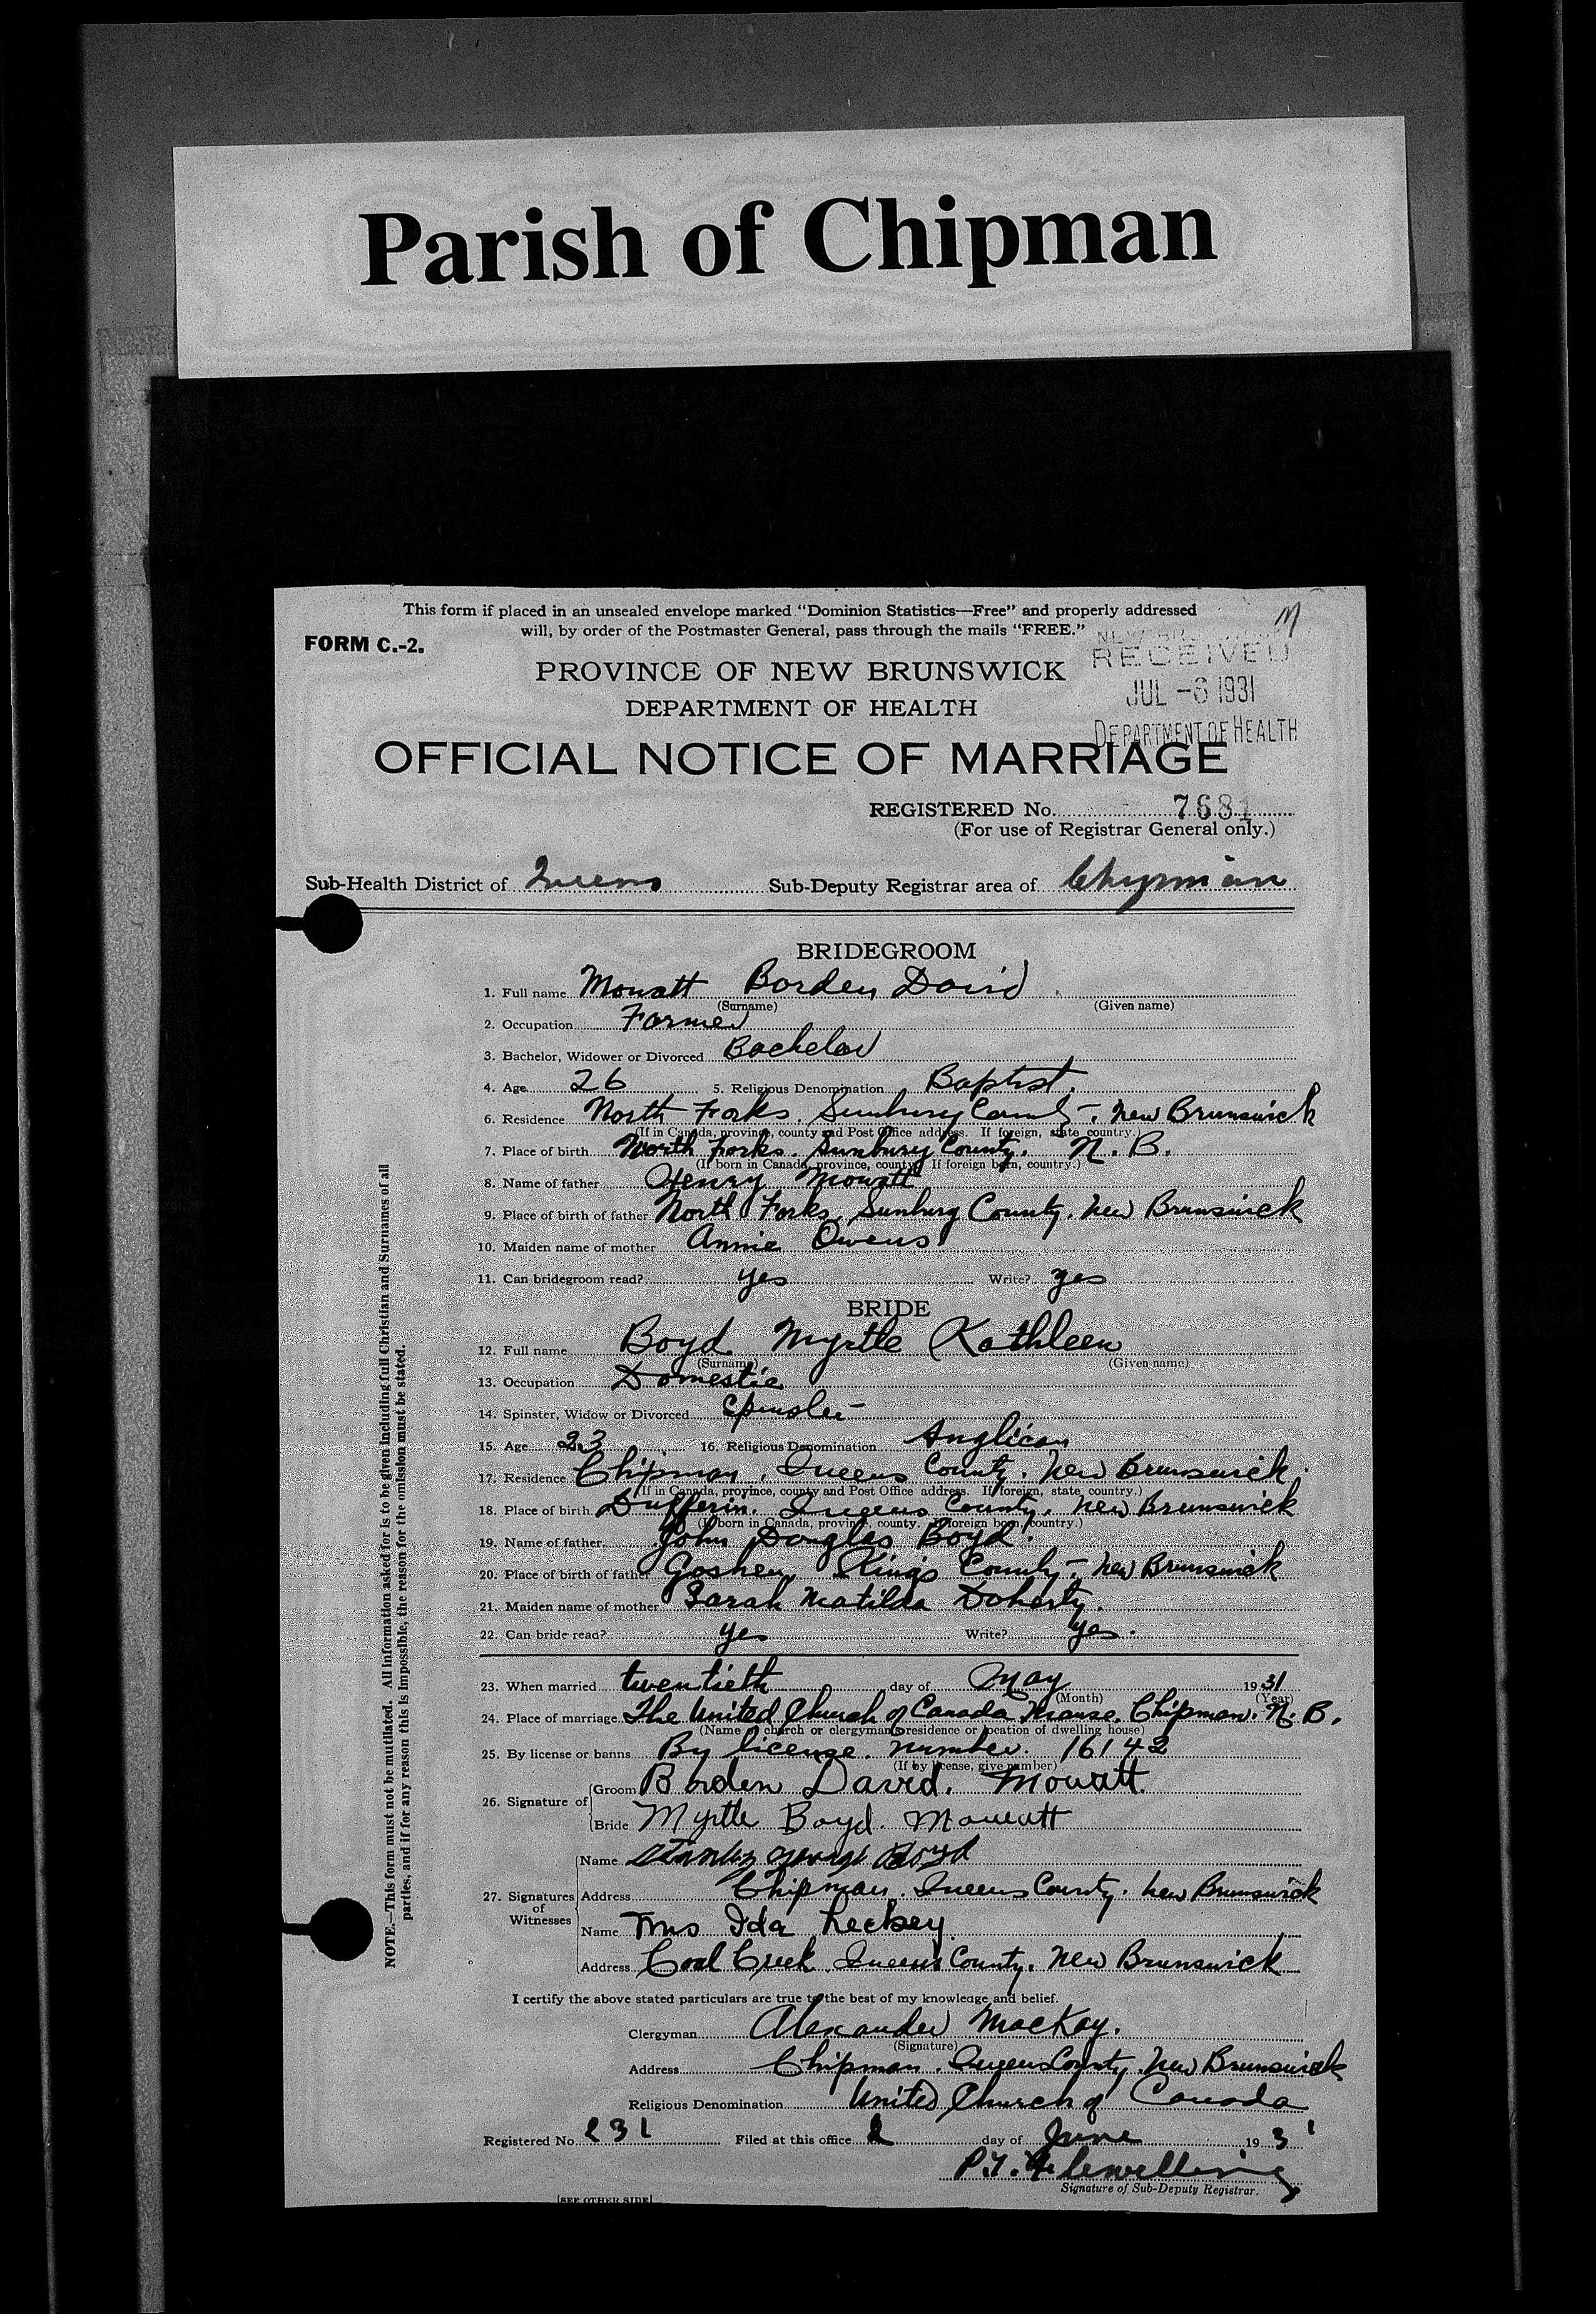 Parish of Chipman
This form if placed in an unsealed envelope marked "Dominion Statistics—Free" and properly addressed
will, by order of the Postmaster General, pass through the mails "FREE."
M
FORM C.-2.
RECEIVED
JUL -6 1931
DEPARTMENT OF HEALTH
PROVINCE OF NEW BRUNSWICK
DEPARTMENT OF HEALTH
OFFICIAL NOTICE OF MARRIAGE
REGISTERED No. 7681
(For use of Registrar General only.)
Sub-Health District of Queens Sub-Deputy Registrar area of Chipman
BRIDEGROOM
1. Full name Mowatt Borden David
(Surname) (Given name)
2. Occupation Farmer
3. Bachelor, Widower or Divorced Bachelor
4. Age 26 5. Religious Denomination Baptist.
6. Residence North Forks. Sunbury County. New Brunswick
(If in Canada, province, county and Post Office address. If foreign, state country.)
7. Place of birth North Forks. Sunbury County. N. B.
(If born in Canada, province, county. If foreign born, country.)
8. Name of father Henry Mowatt
9. Place of birth of father North Forks, Sunbury County. New Brunswick
10. Maiden name of mother Annie Owens
11. Can bridegroom read? yes Write? yes
BRIDE
12. Full name Boyd Myrtle Kathleen
(Surname) (Given name)
13. Occupation Domestic
14. Spinster, Widow or Divorced Spinster
15. Age 23 16. Religious Denomination Anglican
17. Residence Chipman, Queens County. New Brunswick.
(If in Canada, province, county and Post Office address. If foreign, state country.)
18. Place of birth Dufferin. Queens County, New Brunswick
(If born in Canada, province, county. If foreign born, country.)
19. Name of father John Douglas Boyd.
20. Place of birth of father Goshen, Kings County, New Brunswick
21. Maiden name of mother Sarah Matilda Doherty.
22. Can bride read? yes Write? yes.
23. When married twentieth day of May 1931
(Month) (Year)
24. Place of marriage The United Church of Canada Manse. Chipman. N. B.
(Name of church or clergyman's residence or location of dwelling house)
25. By license or banns By license. number. 16142
(If by license, give number)
26. Signature of
Groom Borden David. Mowatt.
Bride Myrtle Boyd. Mowatt
27. Signatures of Witnesses
Name Stanley George Boyd
Address Chipman. Queens County. New Brunswick
Name Mrs Ida Leckey
Address Coal Creek. Queens County. New Brunswick
I certify the above stated particulars are true to the best of my knowledge and belief.
Clergyman Alexander MacKay.
(Signature)
Address Chipman. Queens County. New Brunswick
Religious Denomination United Church of Canada
Registered No. 231 Filed at this office 2 day of June 1931
P.T. Flewelling
Signature of Sub-Deputy Registrar.
[SEE OTHER SIDE]
NOTE.—This form must not be mutilated. All information asked for is to be given including full Christian and Surnames of all
parties, and if for any reason this is impossible, the reason for the omission must be stated.